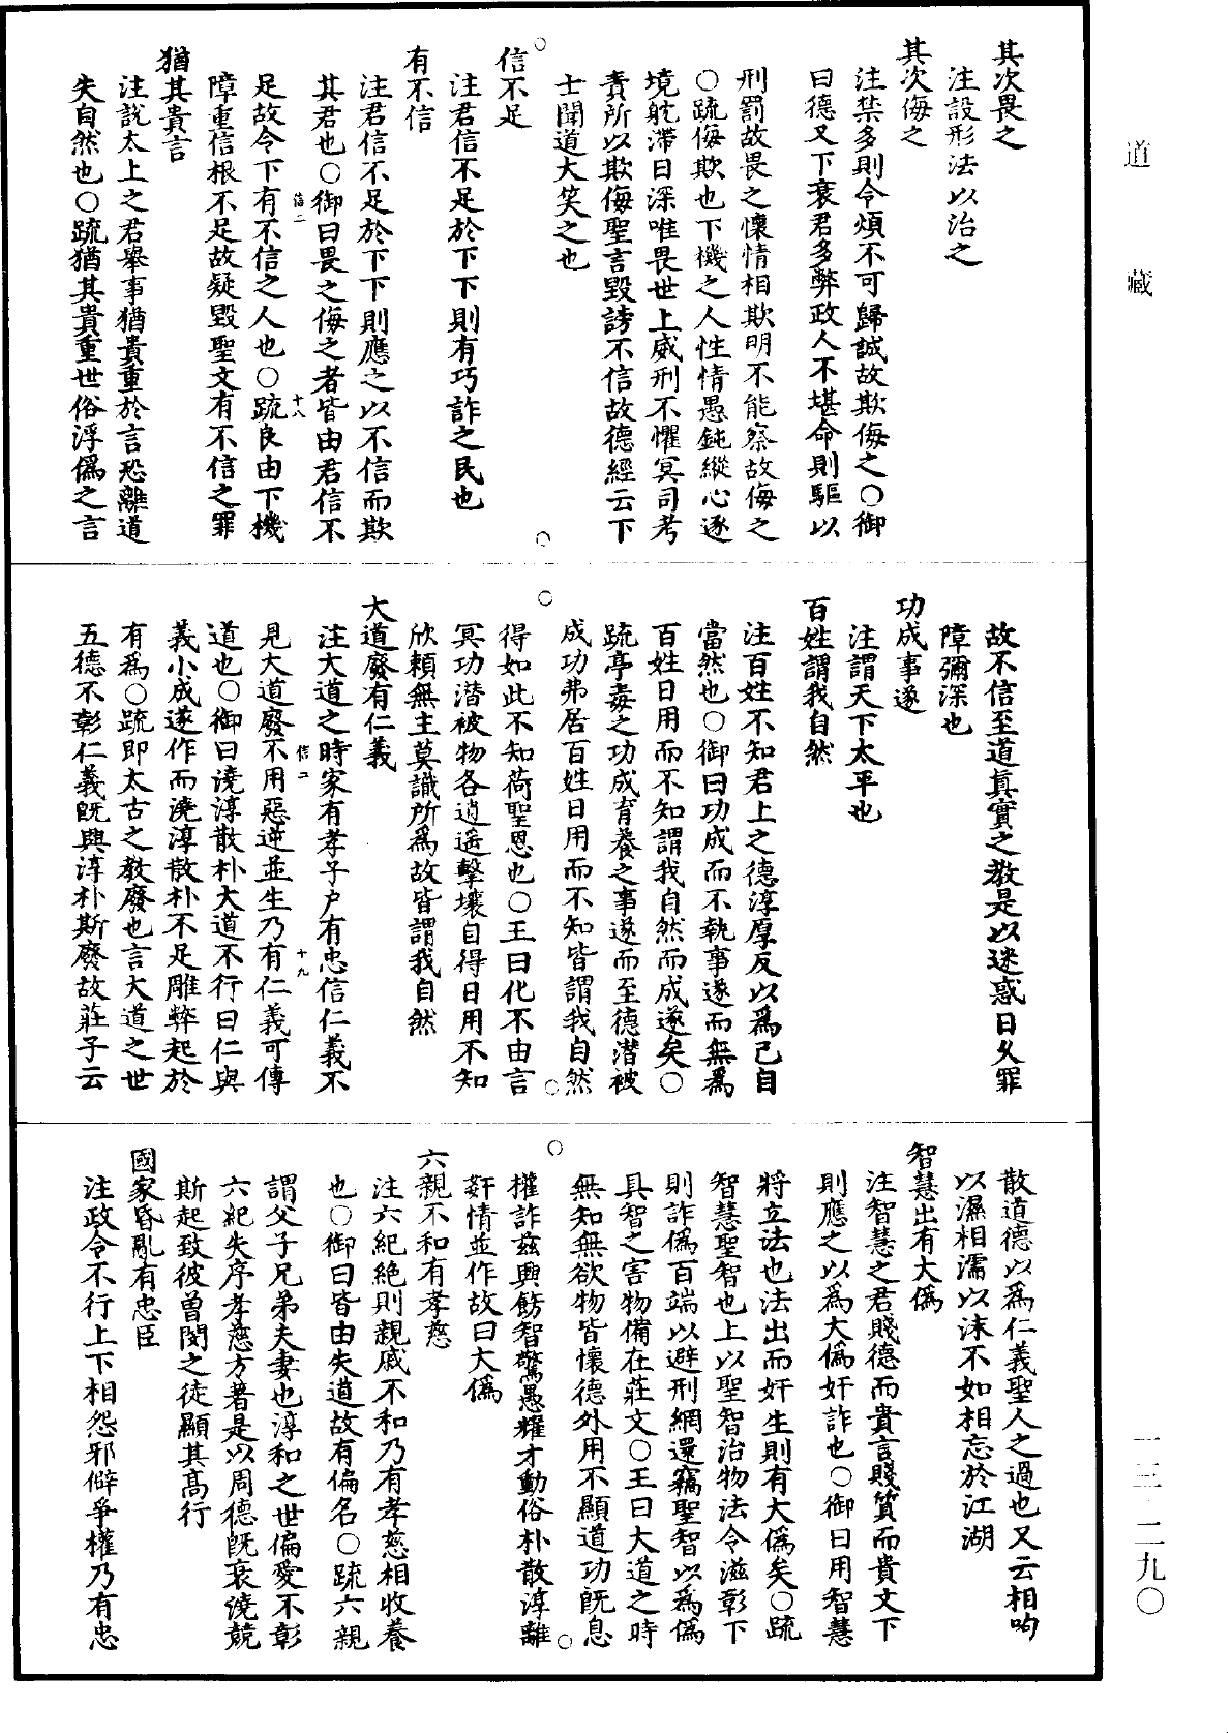 道藏
其次畏之
注設形法以治之
其次侮之
注禁多則令煩不可歸誠故欺侮之○御
曰德又下衰君多弊政人不堪命則驅以
刑罰故畏之懷情相欺明不能察故侮之
○疏侮欺也下機之人性情愚鈍縱心逐
境躭滯日深唯畏世上威刑不懼冥司考
責所以欺侮聖言毀謗不信故德經云下
士聞道大笑之也
信不足
注君信不足於下下則有巧詐之民也
有不信
注君信不足於下下則應之以不信而欺
其君也○御曰畏之侮之者皆由君信不
信二 十八
足故令下有不信之人也○疏良由下機
障重信根不足故疑毀聖文有不信之罪
猶其貴言
注說太上之君舉事猶貴重於言恐離道
失自然也○疏猶其貴重世俗浮僞之言
故不信至道真實之教是以迷惑日久罪
障彌深也
功成事遂
注謂天下太平也
百姓謂我自然
注百姓不知君上之德淳厚反以爲己自
當然也○御曰功成而不執事遂而無爲
百姓日用而不知謂我自然而成遂矣○
疏亭毒之功成育養之事遂而至德潜被
成功弗居百姓日用而不知皆謂我自然
得如此不知荷聖恩也○王曰化不由言
冥功潜被物各逍遥擊壤自得日用不知
欣賴無主莫識所爲故皆謂我自然
大道廢有仁義
注大道之時家有孝子户有忠信仁義不
信二 十九
見大道廢不用惡逆並生乃有仁義可傳
道也○御曰澆淳散朴大道不行曰仁與
義小成遂作而澆淳散朴不足雕弊起於
有爲○疏即太古之教廢也言大道之世
五德不彰仁義既興淳朴斯廢故莊子云
散道德以爲仁義聖人之過也又云相呴
以濕相濡以沫不如相忘於江湖
智慧出有大僞
注智慧之君賤德而貴言賤質而貴文下
則應之以爲大僞奸詐也○御曰用智慧
將立法也法出而奸生則有大僞矣○疏
智慧聖智也上以聖智治物法令滋彰下
則詐僞百端以避刑網還竊聖智以爲僞
具智之害物備在莊文○王曰大道之時
無知無欲物皆懷德外用不顯道功既息
權詐兹興飾智驚愚耀才動俗朴散淳離
姧情並作故曰大僞
六親不和有孝慈
注六紀絶則親戚不和乃有孝慈相收養
也○御曰皆由失道故有偏名○疏六親
謂父子兄弟夫妻也淳和之世偏愛不彰
六紀失序孝慈方著是以周德既衰澆競
斯起致彼曾閔之徒顯其高行
國家昏亂有忠臣
注政令不行上下相怨邪僻爭權乃有忠
一三-二九〇